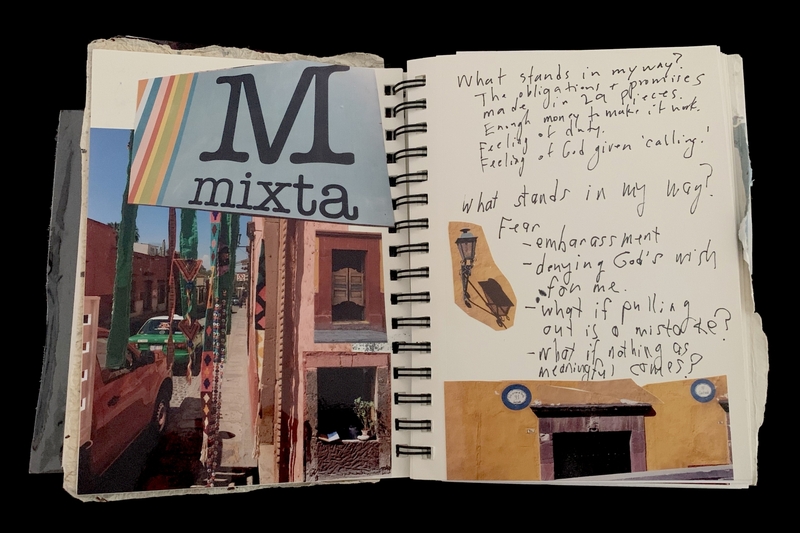 M
mixta
What stands in my way?
The obligations + promises
made in 29 pieces.
Enough money to make it work.
Feeling of duty.
Feeling of God given 'calling.'
What stands in my way?
Fear
- embarassment
- denying God's wish
for me.
- what if pulling
out is a mistake?
- what if nothing as
meaningful comes?